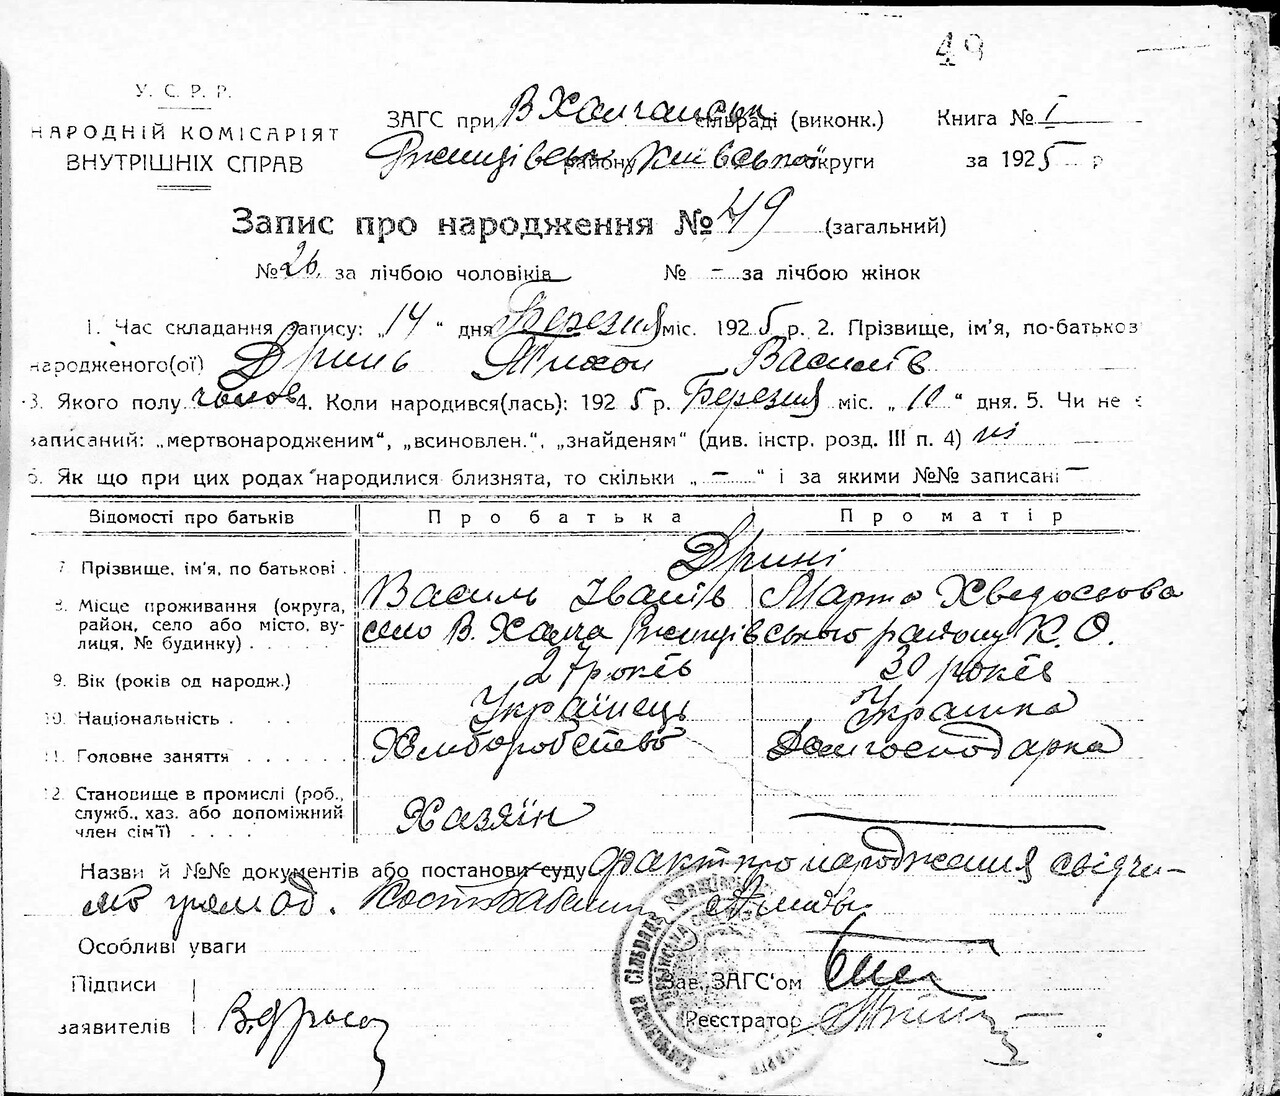 49
У. С. Р. Р.
НАРОДНІЙ КОМІСАРІЯТ
ВНУТРІШНІХ СПРАВ
ЗАГС при В Халчанськ сільраді (виконк.)
Ржищівськ району Київської округи
Книга № I
за 1925 р
Запис про народження № 49 (загальний)
№ 26. за лічбою чоловіків № – за лічбою жінок
1. Час складання запису: „14“ дня Березня міс. 1925 р. 2. Прізвище, ім'я, по-батьков
народженого(ої) Дринь Тихон Василів
3. Якого полу чолов 4. Коли народився(лась): 1925 р. Березня міс. „10“ дня. 5. Чи не є
записаний: „мертвонародженим“, „всиновлен.“, „знайденям“ (див. інстр. розд. III п. 4) ні
6. Як що при цих родах народилися близнята, то скільки „–“ і за якими №№ записані –
Відомості про батьків Про батька Про матір
7 Прізвище, ім'я, по батькові . Дрині
Василь Іванів Марта Хведоськова
8. Місце проживання (округа, район, село або місто, вулиця, № будинку) . . . . . село В. Халча Ржищівського району К. О.
9. Вік (років од народж.) 27 років 30 років
10. Національність . Українець Українка
11. Головне заняття . . . . . . Хліборобство Домгосподарка
12. Становище в промислі (роб., служб., хаз. або допоміжний член сім'ї) . . . . Хазяїн
Назви й №№ документів або постанови суду факт про народження свідчи-
мо громад.
Особливі уваги
Підписи
заявителів
Зав. ЗАГС'ом
Реєстратор